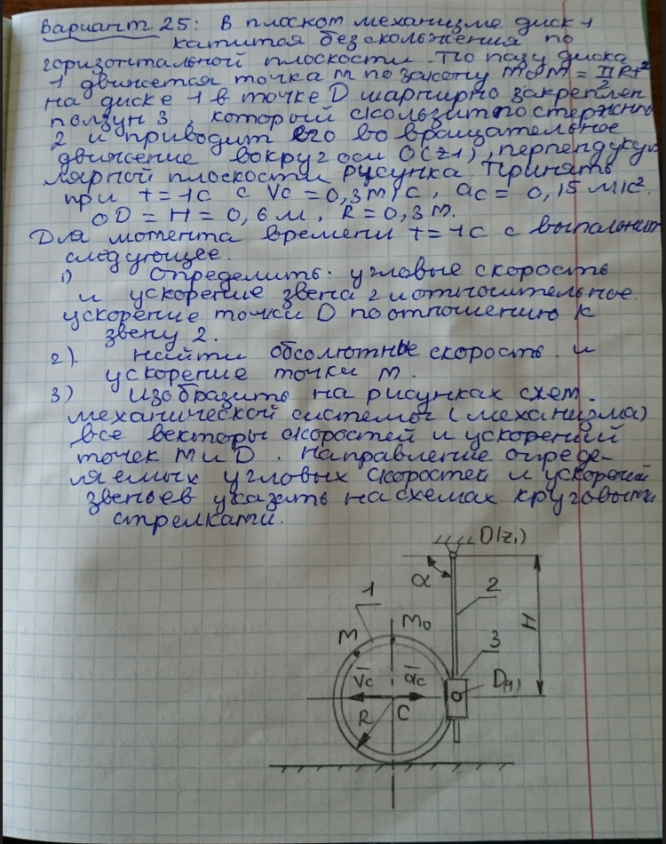 Вариант 25: В плоском механизме диск 1
катится без скольжения по
горизонтальной плоскости. По пазу диска
1 движется точка М по закону M₀M = π/2 Rt²
на диске 1 в точке D шарнирно закреплен
ползун 3, который скользит по стержню
2 и приводит его во вращательное
движение вокруг оси O(z1), перпендику
лярной плоскости рисунка. Принять
при t=1c c Vc = 0,3 м/c, ac = 0,15 м/c².
OD = H = 0,6 м, R = 0,3 м.
Для момента времени t=1c с выполнит
следующее.
1) Определить: угловые скорость
и ускорение звена 2 и относительное
ускорение точки D по отношению к
звену 2.
2). Найти абсолютные скорость и
ускорение точки М.
3) Изобразить на рисунках схем.
механической системы (механизма)
все векторы скоростей и ускорений
точек М и D. Направление опреде-
ляемых угловых скоростей и ускорений
звеньев указать на схемах круговыми
стрелками.
O(z₁)
α
1
2
M₀
H
M
3
V̄c
āc
D(1)
R
C